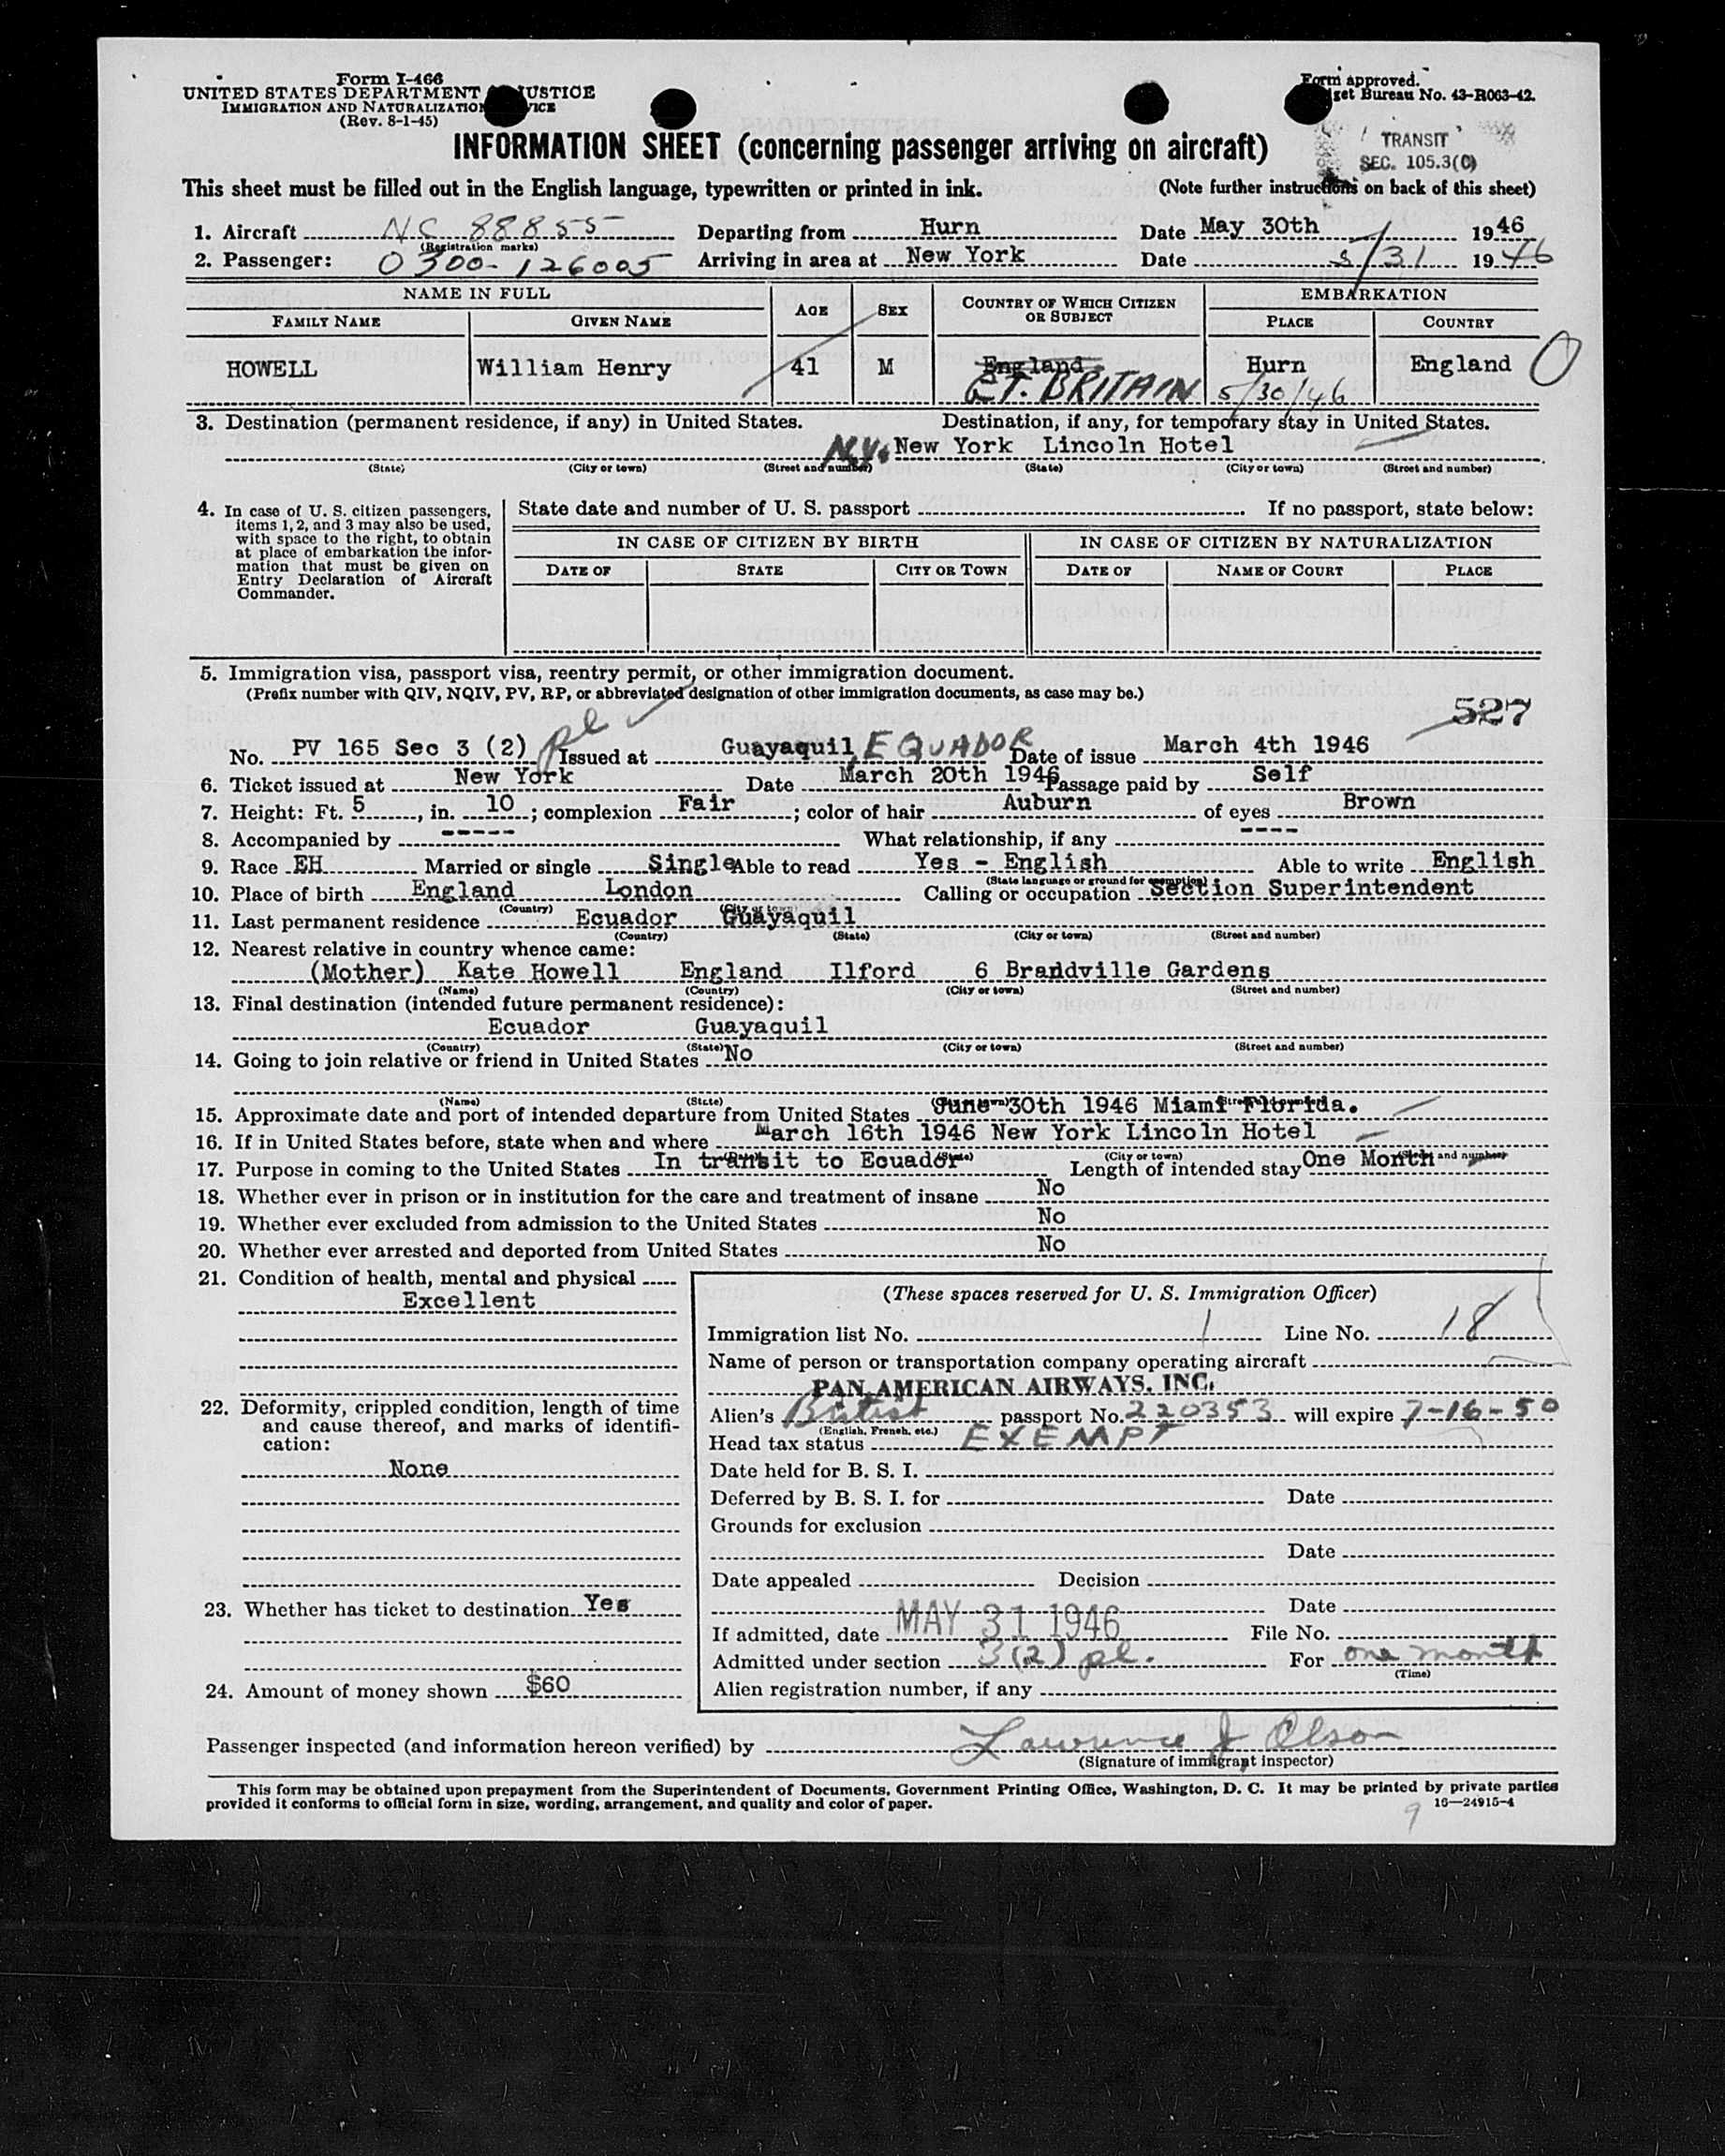 Form I-466
UNITED STATES DEPARTMENT JUSTICE
IMMIGRATION AND NATURALIZATION
(Rev. 8-1-45)
Form approved.
Bureau No. 43-R063-42.
INFORMATION SHEET (concerning passenger arriving on aircraft)
TRANSIT
SEC. 105.3(C)
This sheet must be filled out in the English language, typewritten or printed in ink. (Note further instructions on back of this sheet)
1. Aircraft NC 88855 Departing from Hurn Date May 30th 1946
(Registration marks)
2. Passenger: 0300-126005 Arriving in area at New York Date 5/31 1946
NAME IN FULL AGE SEX COUNTRY OF WHICH CITIZEN OR SUBJECT EMBARKATION
FAMILY NAME GIVEN NAME PLACE COUNTRY
HOWELL William Henry 41 M England Hurn England O
GT. BRITAIN 5/30/46
3. Destination (permanent residence, if any) in United States. Destination, if any, for temporary stay in United States.
N.Y. New York Lincoln Hotel
(State) (City or town) (Street and number) (State) (City or town) (Street and number)
4. In case of U. S. citizen passengers, items 1, 2, and 3 may also be used, with space to the right, to obtain at place of embarkation the information that must be given on Entry Declaration of Aircraft Commander.
State date and number of U. S. passport If no passport, state below:
IN CASE OF CITIZEN BY BIRTH IN CASE OF CITIZEN BY NATURALIZATION
DATE OF STATE CITY OR TOWN DATE OF NAME OF COURT PLACE
5. Immigration visa, passport visa, reentry permit, or other immigration document.
(Prefix number with QIV, NQIV, PV, RP, or abbreviated designation of other immigration documents, as case may be.)
527
No. PV 165 Sec 3 (2) pl Issued at Guayaquil, EQUADOR Date of issue March 4th 1946
6. Ticket issued at New York Date March 20th 1946 Passage paid by Self
7. Height: Ft. 5, in. 10; complexion Fair; color of hair Auburn of eyes Brown
8. Accompanied by ----- What relationship, if any ----
9. Race EH Married or single Single Able to read Yes - English Able to write English
(State language or ground for exemption)
10. Place of birth England London Calling or occupation Section Superintendent
(Country) (City or town)
11. Last permanent residence Ecuador Guayaquil
(Country) (State) (City or town) (Street and number)
12. Nearest relative in country whence came:
(Mother) Kate Howell England Ilford 6 Brandville Gardens
(Name) (Country) (City or town) (Street and number)
13. Final destination (intended future permanent residence):
Ecuador Guayaquil
(Country) (State) (City or town) (Street and number)
14. Going to join relative or friend in United States No
(Name) (State)
15. Approximate date and port of intended departure from United States June 30th 1946 Miami Florida.
16. If in United States before, state when and where March 16th 1946 New York Lincoln Hotel
(State) (City or town) and number)
17. Purpose in coming to the United States In transit to Ecuador Length of intended stay One Month
18. Whether ever in prison or in institution for the care and treatment of insane No
19. Whether ever excluded from admission to the United States No
20. Whether ever arrested and deported from United States No
21. Condition of health, mental and physical
Excellent
22. Deformity, crippled condition, length of time and cause thereof, and marks of identification:
None
23. Whether has ticket to destination Yes
24. Amount of money shown $60
(These spaces reserved for U. S. Immigration Officer)
Immigration list No. 1 Line No. 18
Name of person or transportation company operating aircraft
PAN AMERICAN AIRWAYS, INC.
Alien's British passport No. 220353 will expire 7-16-50
(English, French, etc.)
Head tax status EXEMPT
Date held for B. S. I.
Deferred by B. S. I. for Date
Grounds for exclusion
Date
Date appealed Decision
Date
If admitted, date MAY 31 1946 File No.
Admitted under section 3(2) pl. For one month
(Time)
Alien registration number, if any
Passenger inspected (and information hereon verified) by Lawrence J Olson
(Signature of immigrant inspector)
This form may be obtained upon prepayment from the Superintendent of Documents, Government Printing Office, Washington, D. C. It may be printed by private parties
provided it conforms to official form in size, wording, arrangement, and quality and color of paper.
16—24915-4
9